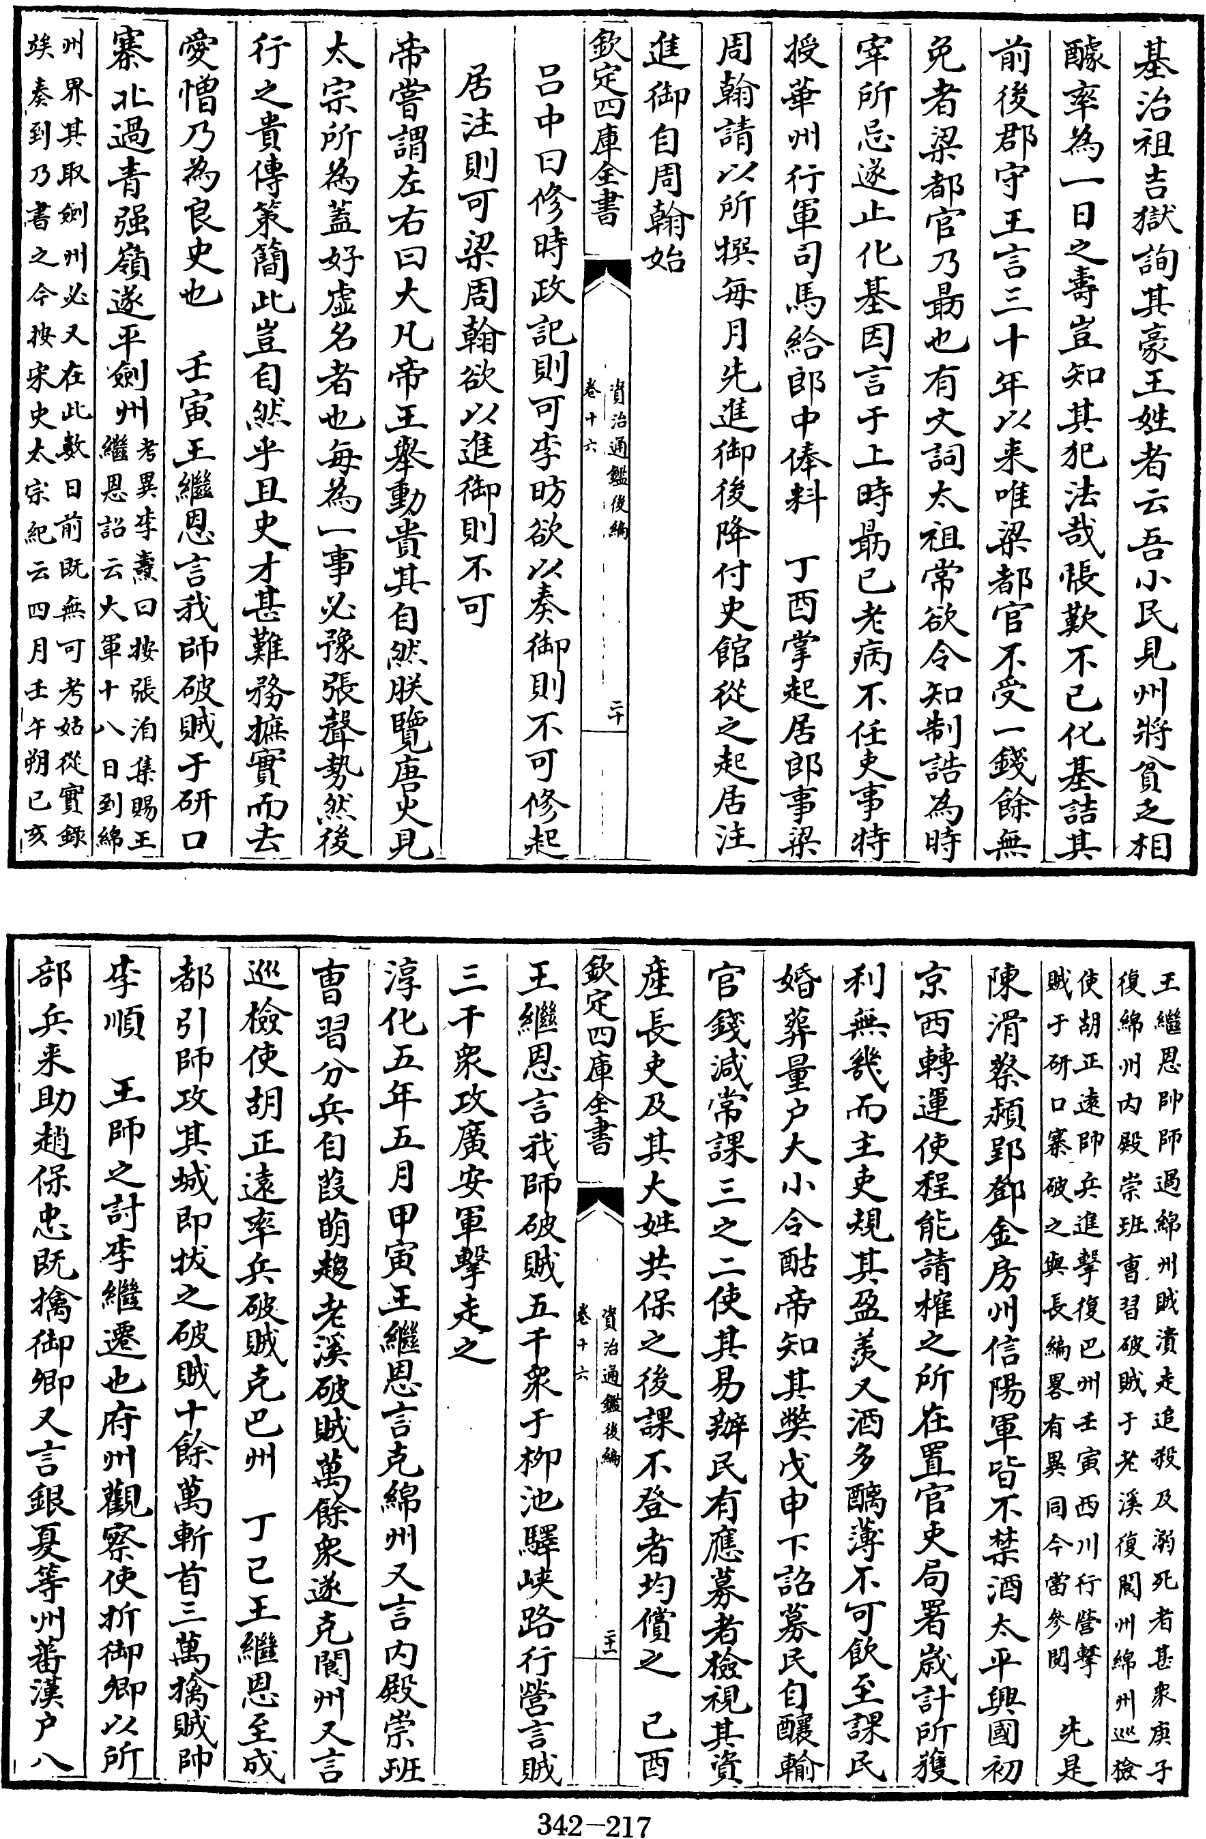 基治祖吉獄詢其豪王姓者云吾小民見州將貧乏相
醵率為一日之壽豈知其犯法哉悵歎不已化基詰其
前後郡守王言三十年以来唯梁都官不受一錢餘無
免者梁都官乃勗也有文詞太祖常欲令知制誥為時
宰所忌遂止化基因言于上時勗已老病不任吏事特
授華州行軍司馬給郎中俸料　丁酉掌起居郎事梁
周翰請以所撰每月先進御後降付史館從之起居注
進御自周翰始
欽定四庫全書
資治通鑑後編
卷十六
二十
呂中曰修時政記則可李昉欲以奏御則不可修起
居注則可梁周翰欲以進御則不可
帝嘗謂左右曰大凡帝王舉動貴其自然朕覽唐史見
太宗所為蓋好虛名者也每為一事必豫張聲勢然後
行之貴傳策簡此豈自然乎且史才甚難務摭實而去
愛憎乃為良史也　壬寅王繼恩言我師破賊于研口
寨北過青强嶺遂平劍州
考異李燾曰按張洎集賜王
繼恩詔云大軍十八日到綿
州界其取劍州必又在此數日前既無可考姑從實録
竢奏到乃書之今按宋史太宗紀云四月壬午朔己亥
王繼恩帥師過綿州賊潰走追殺及溺死者甚衆庚子
復綿州内殿崇班曹習破賊于老溪復閬州綿州巡檢
使胡正遠帥兵進擊復巴州壬寅西川行營擊
賊于研口寨破之與長編畧有異同今當參閲
先是
陳滑蔡潁郢鄧金房州信陽軍皆不禁酒太平興國初
京西轉運使程能請榷之所在置官吏局署歳計所獲
利無幾而主吏規其盈羨又酒多醨薄不可飲至課民
婚葬量户大小令酤帝知其獘戊申下詔募民自釀輸
官錢減常課三之二使其易辦民有應募者檢視其資
產長吏及其大姓共保之後課不登者均償之　己酉
欽定四庫全書
資治通鑑後編
卷十六
二十一
王繼恩言我師破賊五千衆于柳池驛峡路行營言賊
三千衆攻廣安軍擊走之
淳化五年五月甲寅王繼恩言克綿州又言内殿崇班
曹習分兵自葭萌趨老溪破賊萬餘衆遂克閬州又言
巡檢使胡正遠率兵破賊克巴州　丁巳王繼恩至成
都引師攻其城即拔之破賊十餘萬斬首三萬擒賊帥
李順　王師之討李繼遷也府州觀察使折御卿以所
部兵来助趙保忠既擒御卿又言銀夏等州蕃漢户八
342-217